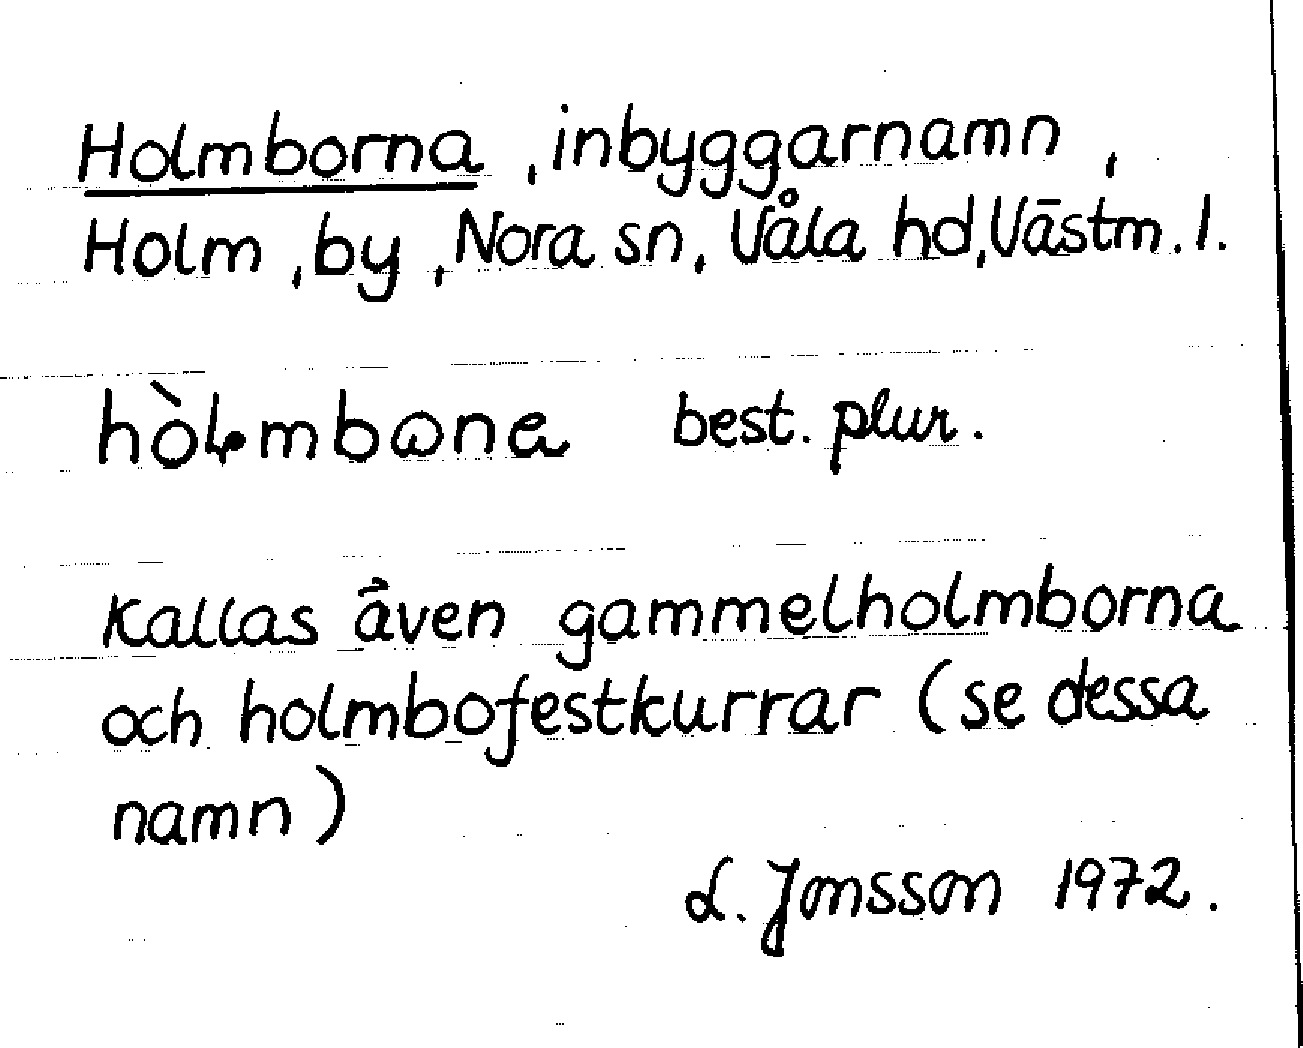 Holmborna, inbyggarnamn,
Holm, by, Nora sn, Våla hd, Västm. l.
hòlmbɷna best. plur.
Kallas även gammelholmborna
och holmbofestkurrar (se dessa
namn)
L. Jonsson 1972.